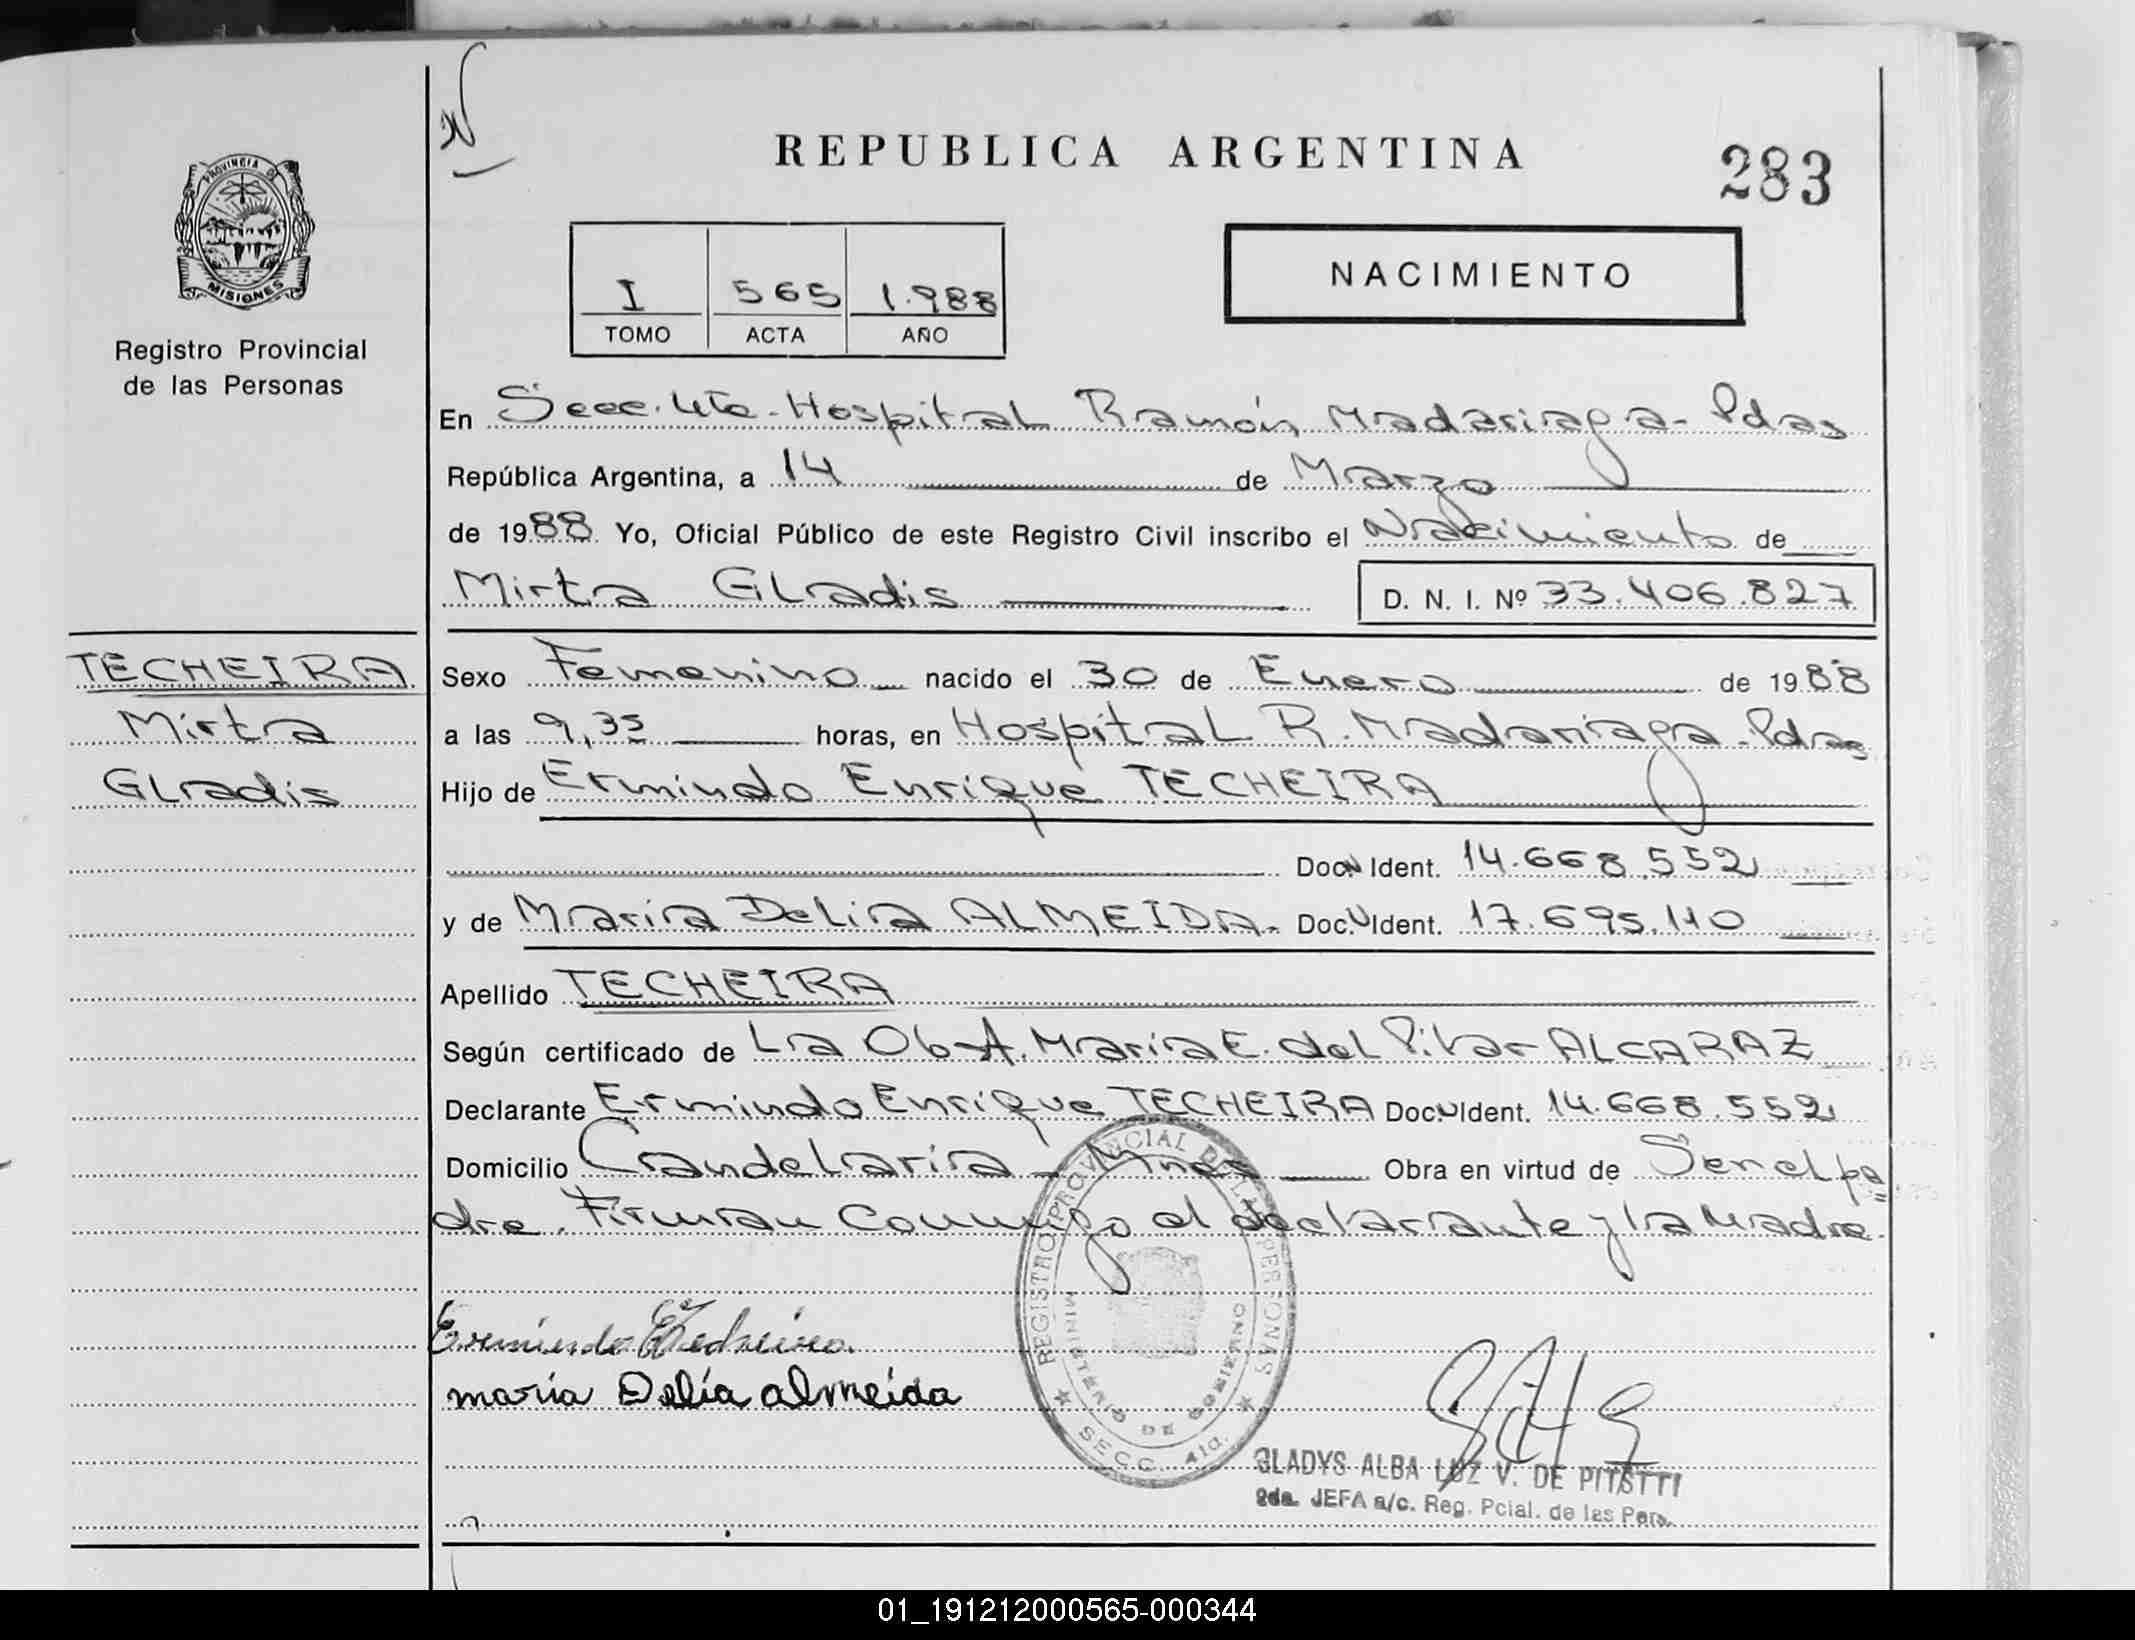 N
REPUBLICA ARGENTINA
283
PROVINCIA DE
MISIONES
Registro Provincial
de las Personas
I 565 1.988
TOMO ACTA AÑO
NACIMIENTO
En Secc. 4ta - Hospital Ramón Madariaga - Pdas
República Argentina, a 14 de Marzo
de 1988 Yo, Oficial Público de este Registro Civil inscribo el Nacimiento de
Mirta Gladis D. N. I. Nº 33.406.827
TECHEIRA
Mirta
Gladis
Sexo Femenino nacido el 30 de Enero de 1988
a las 9,35 horas, en Hospital R. Madariaga - Pdas
Hijo de Ermindo Enrique TECHEIRA
Doc. Ident. 14.668.552
y de María Delia ALMEIDA. Doc. Ident. 17.695.110
Apellido TECHEIRA
Según certificado de La Obst. María E. del Pilar ALCARAZ
Declarante Ermindo Enrique TECHEIRA Doc. Ident. 14.668.552
Domicilio Candelaria - Mnes Obra en virtud de Ser el pa=
dre. Firman Conmigo el declarante y la Madre.
Ermindo E Techeira
maria Delia almeida
REGISTRO PROVINCIAL DE LAS PERSONAS
MINISTERIO DE GOBIERNO
SECC. 4ta.
GLADYS ALBA LUZ V. DE
2da. JEFA a/c. Reg. Pcial. de las Pers.
01_191212000565-000344